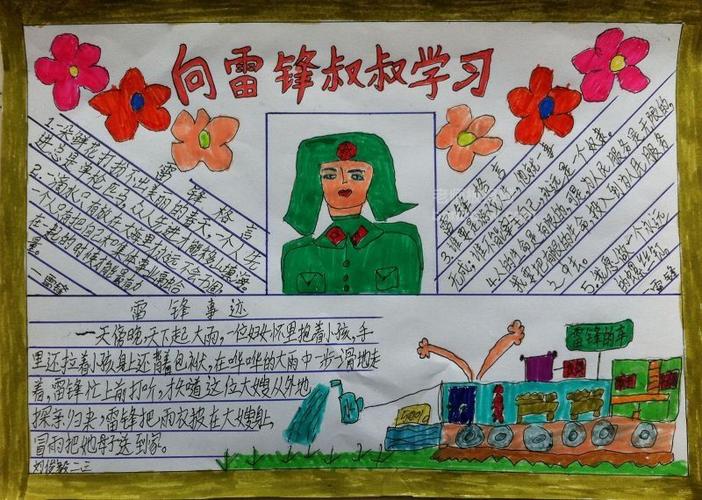 向雷锋叔叔学习
雷锋格言
1.一朵鲜花打扮不出美丽的春天,一个人先
进总是单枪匹马,众人先进才能移山填海
2.一滴水只有放在大海里才永远不会干涸
一个人只有把自己和集体事业融合
在一起的时候才能最有力
量。
一雷锋
雷锋格言
3.谁要是游戏人生,他就一事
无成;谁不能主宰自己,永远是一个奴隶。
4.人的生命是有限的,可是,为人民服务是无限的,
我要把有限的生命,投入到为人民服务
之中去。
5.我愿做一个永远
的螺丝钉
雷锋
雷锋事迹
一天傍晚,天下起大雨,一位妇女怀里抱着小孩,手
里还拉着小孩,身上还背着包袱,在哗哗的大雨中一步一滑地走
着,雷锋忙上前打听,才知道这位大嫂从外地
探亲归来,雷锋把雨衣披在大嫂身上,
冒雨把她母子送到家。
二三
雷锋的车